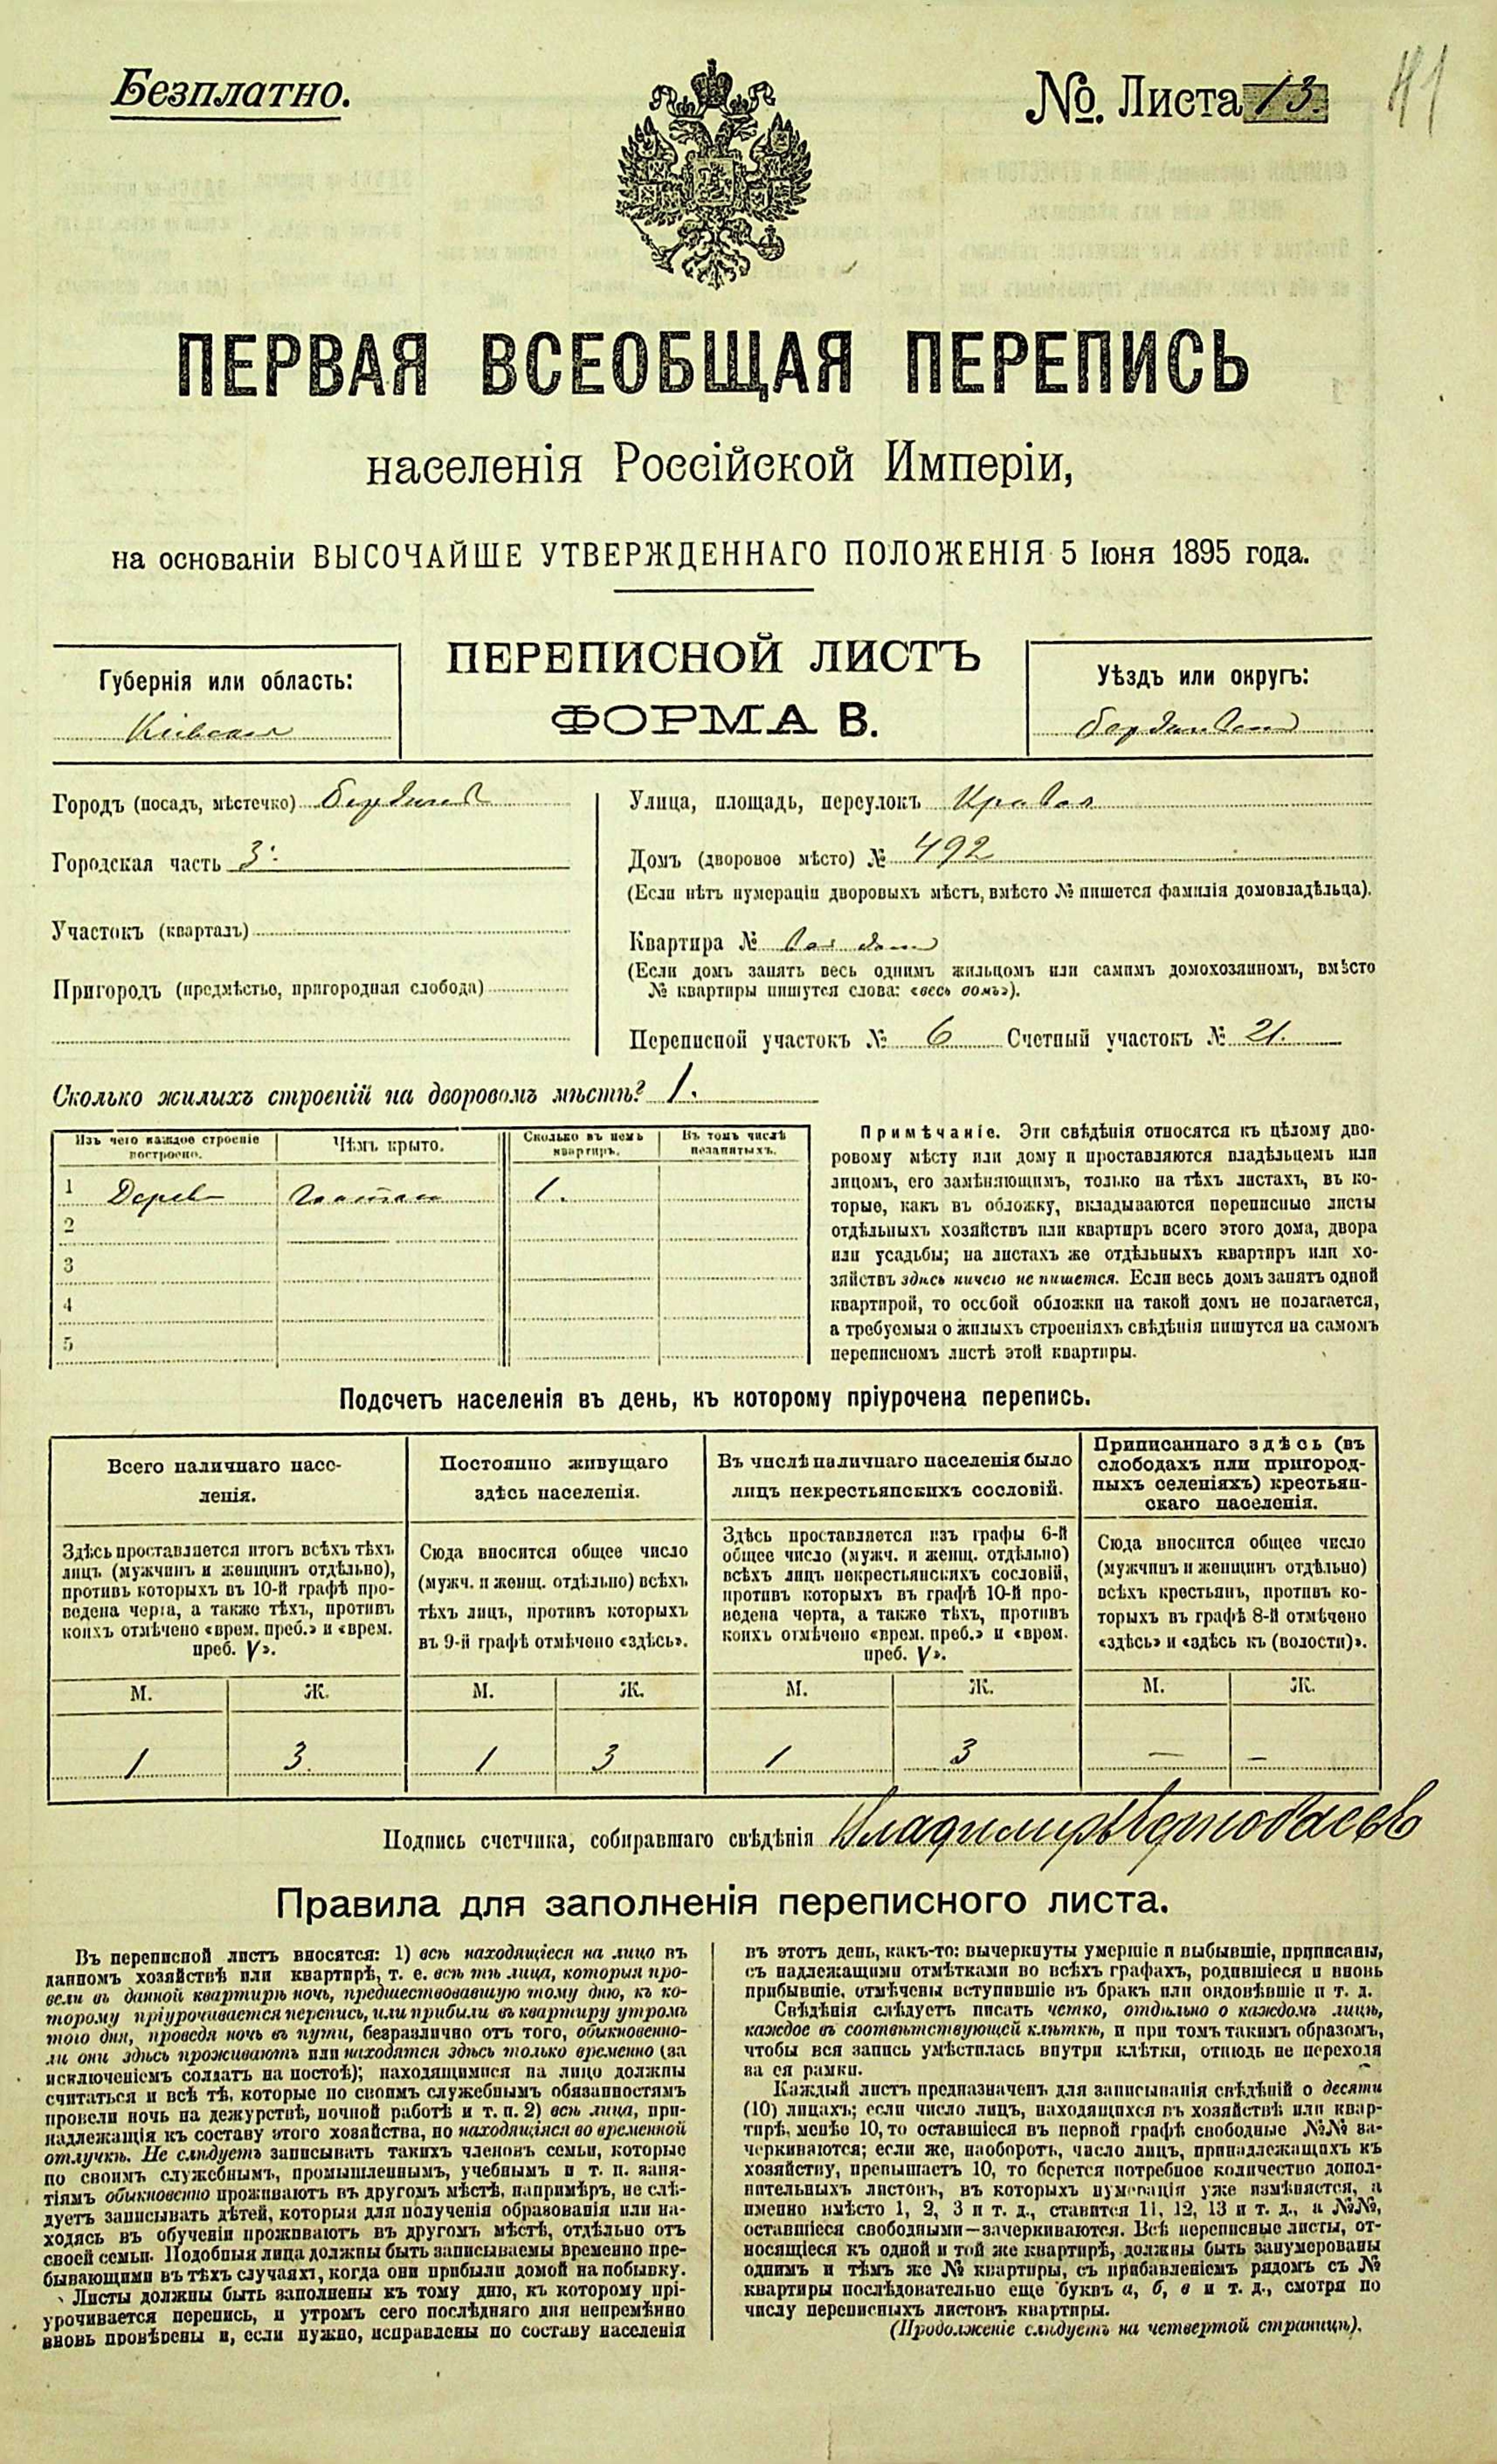 Безплатно.
№. Листа 13.
41
ПЕРВАЯ ВСЕОБЩАЯ ПЕРЕПИСЬ
населенія Россійской Имперіи,
на основаніи ВЫСОЧАЙШЕ УТВЕРЖДЕННАГО ПОЛОЖЕНІЯ 5 Іюня 1895 года.
ПЕРЕПИСНОЙ ЛИСТЪ
ФОРМА В.
Губернія или область:
Кіевская
Уѣздъ или округъ:
Бердичевскій
Городъ (посадъ, мѣстечко) Бердичев
Городская часть 3.
Участокъ (кварталъ)
Пригородъ (предмѣстье, пригородная слобода)
Улица, площадь, переулокъ Кривая
Домъ (дворовое мѣсто) № 492
(Если нѣтъ нумераціи дворовыхъ мѣстъ, вмѣсто № пишется фамилія домовладѣльца).
Квартира № весь домъ
(Если домъ занятъ весь однимъ жильцомъ или самимъ домохозяиномъ, вмѣсто
№ квартиры пишутся слова: «весь домъ»).
Переписной участокъ № 6 Счетный участокъ № 21.
Сколько жилыхъ строеній на дворовомъ мѣстѣ? 1.
Изъ чего каждое строеніе
построено.
Чѣмъ крыто.
Сколько въ немъ
квартиръ.
Въ томъ числѣ
незанятыхъ.
1 Дерев 1.
2
3
4
5
Примѣчаніе. Эти свѣдѣнія относятся къ цѣлому дво-
ровому мѣсту или дому и проставляются владѣльцемъ или
лицомъ, его замѣняющимъ, только на тѣхъ листахъ, въ ко-
торые, какъ въ обложку, вкладываются переписные листы
отдѣльныхъ хозяйствъ или квартиръ всего этого дома, двора
или усадьбы; на листахъ же отдѣльныхъ квартиръ или хо-
зяйствъ здѣсь ничего не пишется. Если весь домъ занятъ одной
квартирой, то особой обложки на такой домъ не полагается,
а требуемыя о жилыхъ строеніяхъ свѣдѣнія пишутся на самомъ
переписномъ листѣ этой квартиры.
Подсчетъ населенія въ день, къ которому пріурочена перепись.
Всего наличнаго насе-
ленія.
Постоянно живущаго
здѣсь населенія.
Въ числѣ наличнаго населенія было
лицъ некрестьянскихъ сословій.
Приписаннаго здѣсь (въ
слободахъ или пригород-
ныхъ селеніяхъ) крестьян-
скаго населенія.
Здѣсь проставляется итогъ всѣхъ тѣхъ
лицъ (мужчинъ и женщинъ отдѣльно),
противъ которыхъ въ 10-й графѣ про-
ведена черта, а также тѣхъ, противъ
коихъ отмѣчено «врем. преб.» и «врем.
преб. V».
Сюда вносится общее число
(мужч. и женщ. отдѣльно) всѣхъ
тѣхъ лицъ, противъ которыхъ
въ 9-й графѣ отмѣчено «здѣсь».
Здѣсь проставляется изъ графы 6-й
общее число (мужч. и женщ. отдѣльно)
всѣхъ лицъ некрестьянскихъ сословій,
противъ которыхъ въ графѣ 10-й про-
ведена черта, а также тѣхъ, противъ
коихъ отмѣчено «врем. преб.» и «врем.
преб. V».
Сюда вносится общее число
(мужчинъ и женщинъ отдѣльно)
всѣхъ крестьянъ, противъ ко-
торыхъ въ графѣ 8-й отмѣчено
«здѣсь» и «здѣсь къ (волости)».
М. Ж. М. Ж. М. Ж. М. Ж.
1 3. 1 3 1 3 — —
Подпись счетчика, собиравшаго свѣдѣнія Владимиръ
Правила для заполненія переписного листа.
Въ переписной листъ вносятся: 1) всѣ находящіеся на лицо въ
данномъ хозяйствѣ или квартирѣ, т. е. всѣ тѣ лица, которыя про-
вели въ данной квартирѣ ночь, предшествовавшую тому дню, къ ко-
торому пріурочивается перепись, или прибыли въ квартиру утромъ
того дня, проведя ночь въ пути, безразлично отъ того, обыкновенно-
ли они здѣсь проживаютъ или находятся здѣсь только временно (за
исключеніемъ солдатъ на постоѣ); находящимися на лицо должны
считаться и всѣ тѣ, которые по своимъ служебнымъ обязанностямъ
провели ночь на дежурствѣ, ночной работѣ и т. п. 2) всѣ лица, при-
надлежащія къ составу этого хозяйства, но находящіяся во временной
отлучкѣ. Не слѣдуетъ записывать такихъ членовъ семьи, которые
по своимъ служебнымъ, промышленнымъ, учебнымъ и т. п. заня-
тіямъ обыкновенно проживаютъ въ другомъ мѣстѣ, напримѣръ, не слѣ-
дуетъ записывать дѣтей, которыя для полученія образованія или на-
ходясь въ обученіи проживаютъ въ другомъ мѣстѣ, отдѣльно отъ
своей семьи. Подобныя лица должны быть записываемы временно пре-
бывающими въ тѣхъ случаяхъ, когда они прибыли домой на побывку.
Листы должны быть заполнены къ тому дню, къ которому прі-
урочивается перепись, и утромъ сего послѣдняго дня непремѣнно
вновь провѣрены и, если нужно, исправлены по составу населенія
въ этотъ день, какъ-то: вычеркнуты умершіе и выбывшіе, приписаны,
съ надлежащими отмѣтками во всѣхъ графахъ, родившіеся и вновь
прибывшіе, отмѣчены вступившіе въ бракъ или овдовѣвшіе и т. д.
Свѣдѣнія слѣдуетъ писать четко, отдѣльно о каждомъ лицѣ,
каждое въ соотвѣтствующей клѣткѣ, и при томъ такимъ образомъ,
чтобы вся запись умѣстилась внутри клѣтки, отнюдь не переходя
за ея рамки.
Каждый листъ предназначенъ для записыванія свѣдѣній о десяти
(10) лицахъ; если число лицъ, находящихся въ хозяйствѣ или квар-
тирѣ, менѣе 10, то оставшіеся въ первой графѣ свободные №№ за-
черкиваются; если же, наоборотъ, число лицъ, принадлежащихъ къ
хозяйству, превышаетъ 10, то берется потребное количество допол-
нительныхъ листовъ, въ которыхъ нумерація уже измѣняется, а
именно вмѣсто 1, 2, 3 и т. д., ставятся 11, 12, 13 и т. д., а №№,
оставшіеся свободными—зачеркиваются. Всѣ переписные листы, от-
носящіеся къ одной и той же квартирѣ, должны быть занумерованы
однимъ и тѣмъ же № квартиры, съ прибавленіемъ рядомъ съ №
квартиры послѣдовательно еще буквъ а, б, в и т. д., смотря по
числу переписныхъ листовъ квартиры.
(Продолженіе слѣдуетъ на четвертой страницѣ).